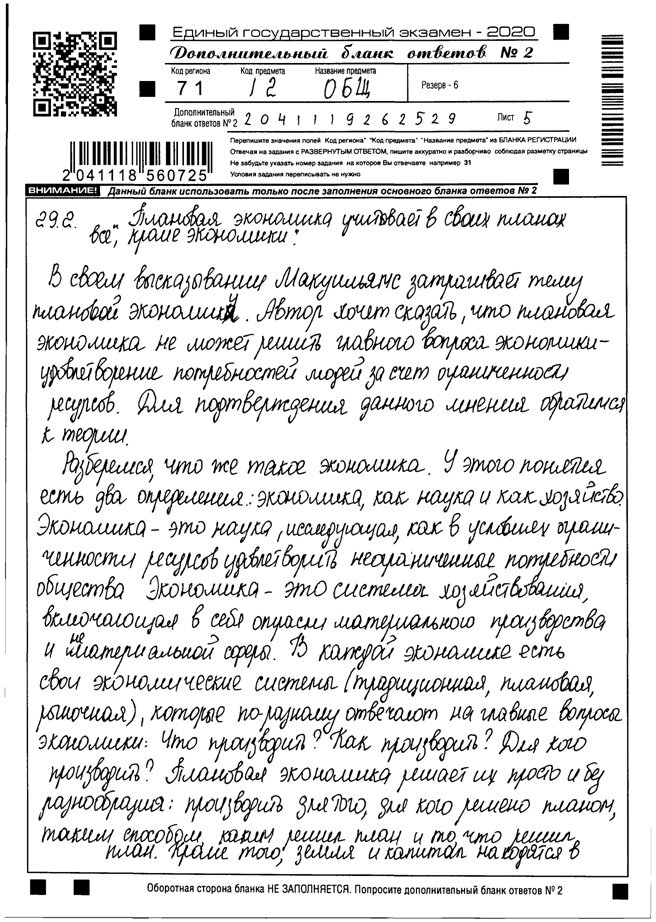 Единый государственный экзамен - 2020
Дополнительный бланк ответов № 2
Код региона Код предмета Название предмета
71 12 ОБЩ Резерв - 6
Дополнительный
бланк ответов № 2 2041119262529 Лист 5
Перепишите значения полей "Код региона" "Код предмета" "Название предмета" из БЛАНКА РЕГИСТРАЦИИ
Отвечая на задания с РАЗВЕРНУТЫМ ОТВЕТОМ, пишите аккуратно и разборчиво соблюдая разметку страницы
Не забудьте указать номер задания на которое Вы отвечаете например 31
Условия задания переписывать не нужно
2 041118 560725
ВНИМАНИЕ! Данный бланк использовать только после заполнения основного бланка ответов № 2
29.2. „Плановая экономика учитовает в своих планах
все, кроме экономики".
В своем высказывании Макуильямс затрагивает тему
плановой экономики. Автор хочет сказать, что плановая
экономика не может решить главного вопроса экономики-
удовлетворение потребностей людей за счет ограниченности
ресурсов. Для подтверждения данного мнения обратимся
к теории.
Разберемся, что же такое экономика. У этого понятия
есть два определения: экономика, как наука и как хозяйство.
Экономика - это наука, исследующая, как в условиях ограни-
ченности ресурсов удовлетворить неограниченные потребности
общества Экономика - это система хозяйствования,
включающая в себя отрасли материального производства
и нематериальной сферы. В каждой экономике есть
свои экономические системы (традиционная, плановая,
рыночная), которые по-разному отвечают на главные вопросы
экономики: Что производить? Как производить? Для кого
производить? Плановая экономика решает их просто и без
разнообразия: производить для того, для кого решено планом,
таким способом, каким решил план и то, что решил
план. Кроме того, земля и капитал находятся в
Оборотная сторона бланка НЕ ЗАПОЛНЯЕТСЯ. Попросите дополнительный бланк ответов № 2